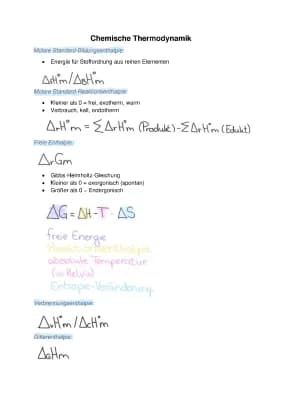 Chemische Thermodynamik
Molare Standard-Bildungsenthalpie:
• Energie für Stoffordnung aus reinen Elementen
ΔfH°m/ΔBH°m
Molare Standard-Reaktionsenthalpie:
• Kleiner als 0 = frei, exotherm, warm
• Verbrauch, kalt, endotherm
ΔrH°m = ΣΔrH°m (Produkt)-ΣΔrH°m (Edukt)
Freie Enthalpie:
ΔrGm
• Gibbs Helmholtz-Gleichung
• Kleiner als 0 = exergonisch (spontan)
• Größer als 0 = Endergonisch
ΔG = ΔH-T·ΔS
freie Energie
Reaktionsenthalpie
absolute Temperatur
(in Kelvin)
Entropie-Veränderung
Verbrennungsenthalpie:
ΔvH°m/ΔcH°m
Gitterenthalpie:
ΔGHm